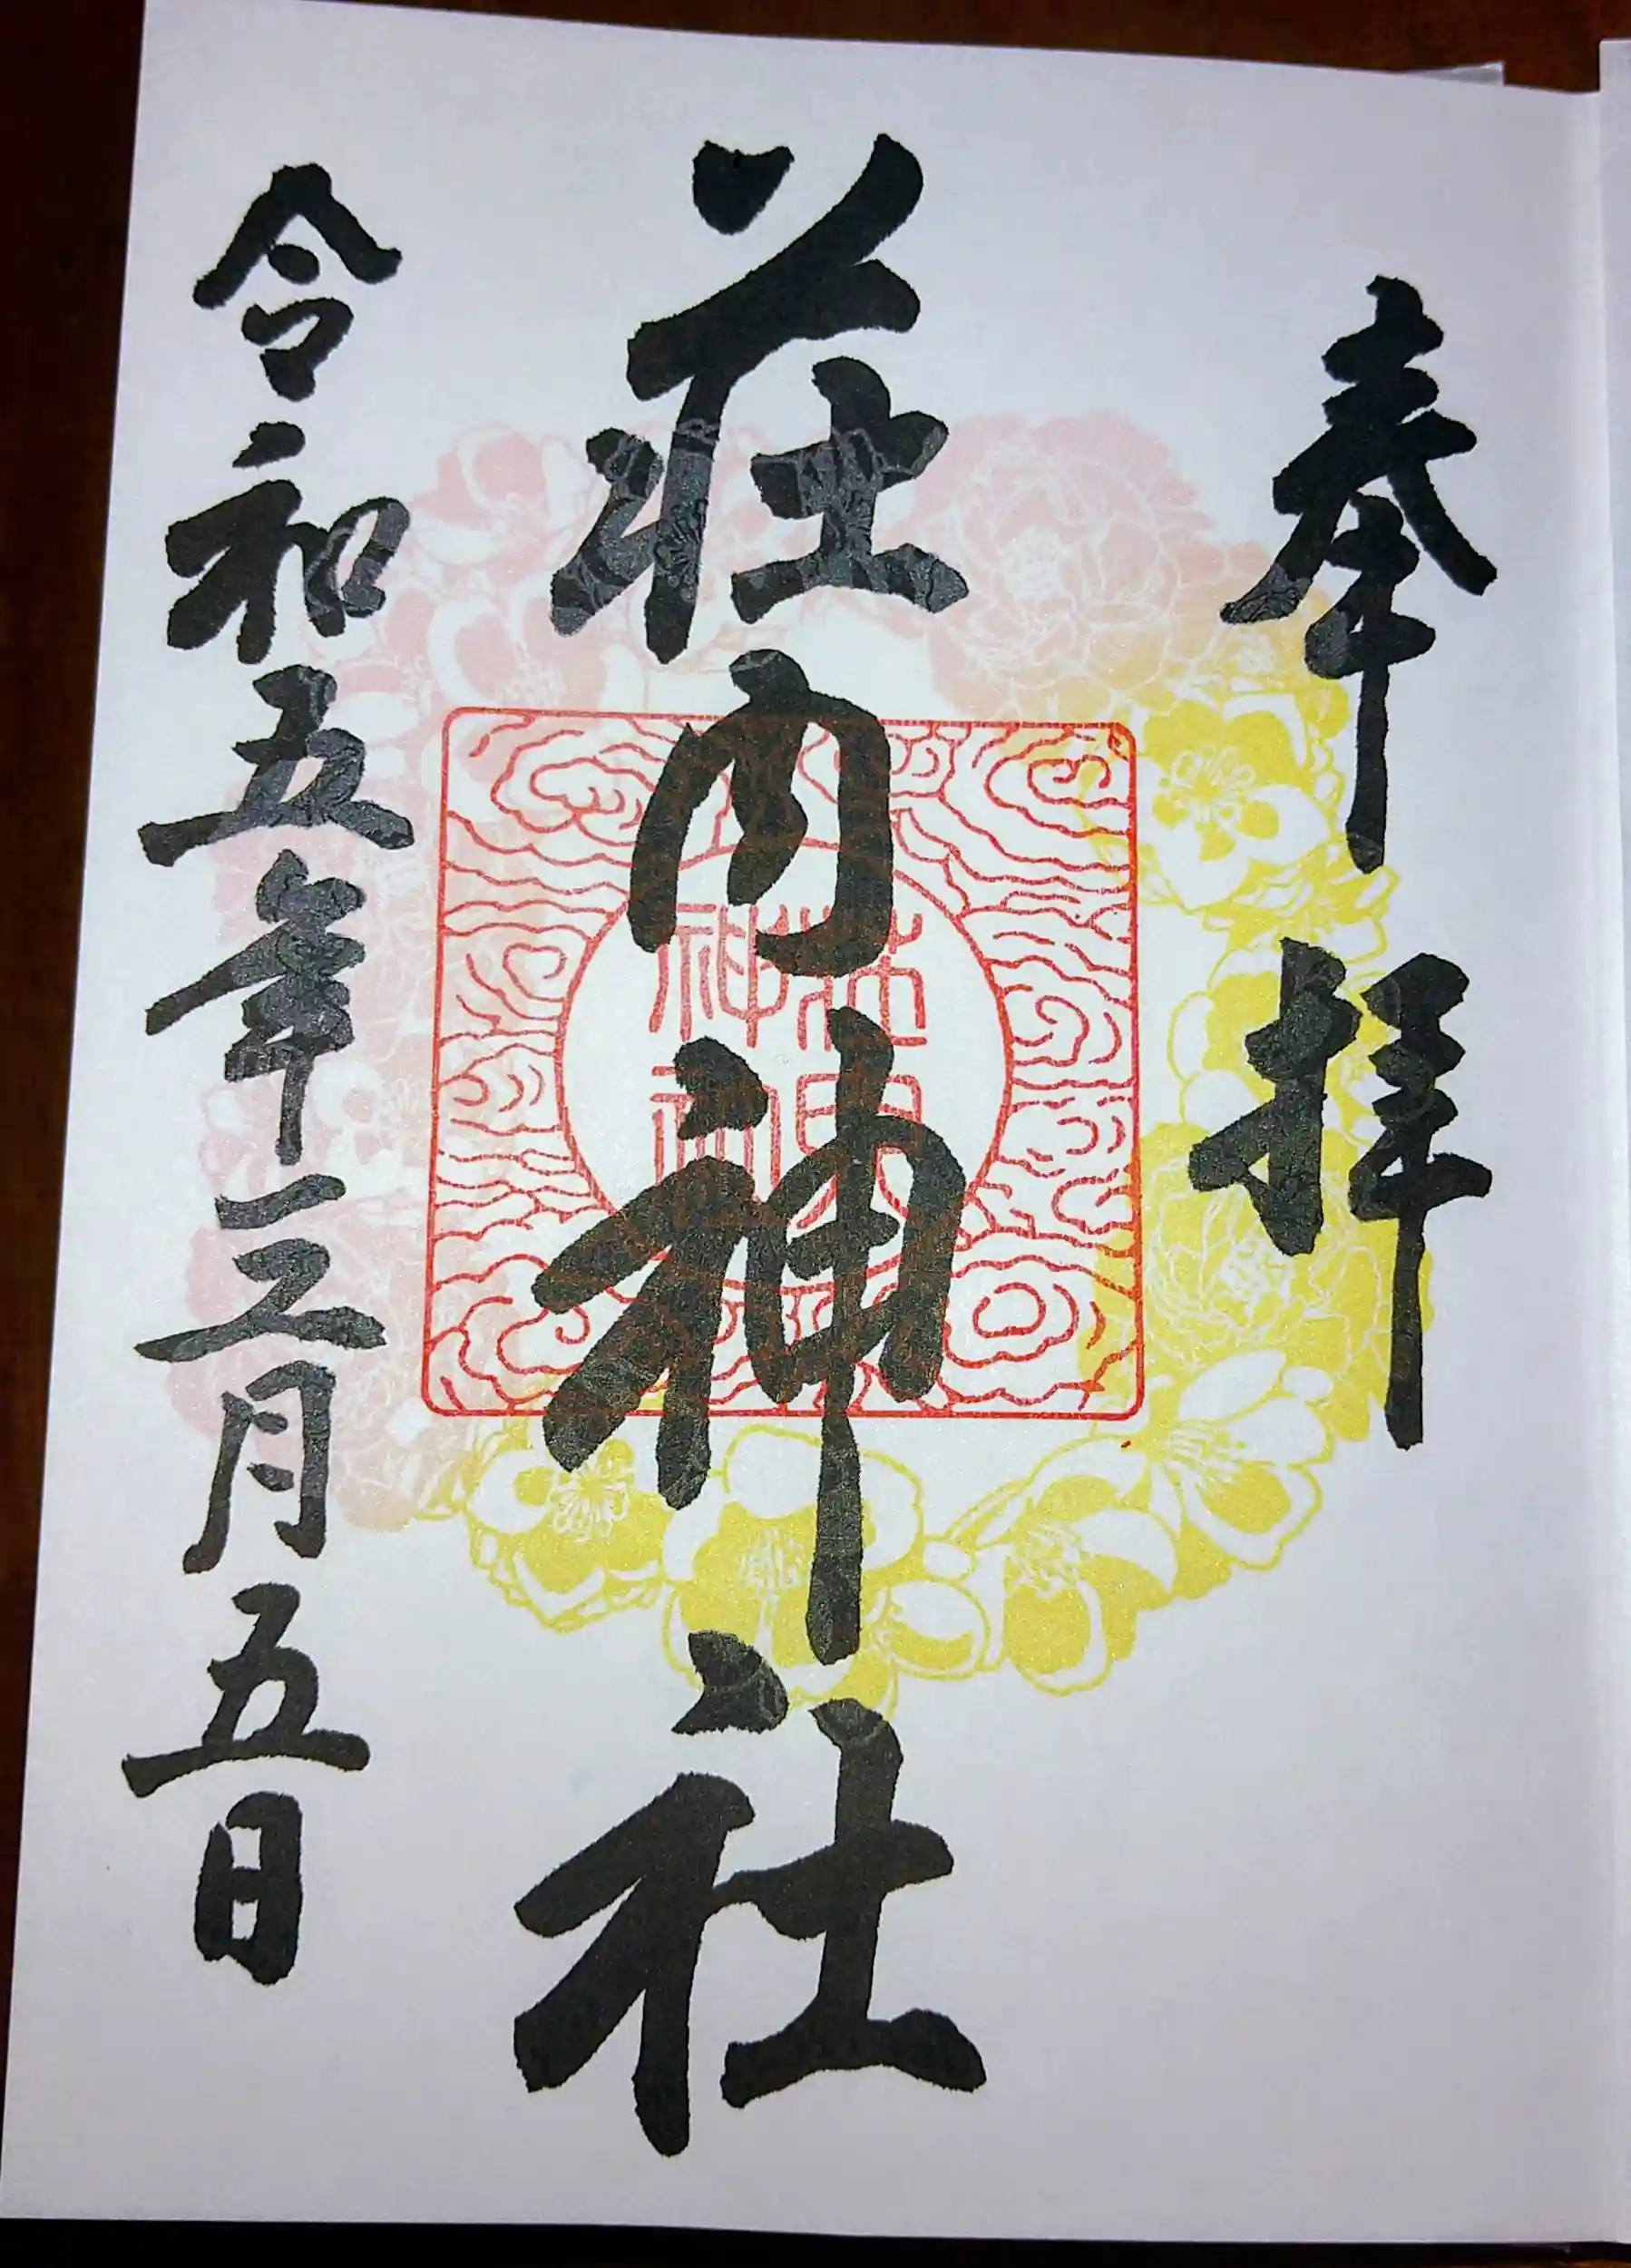 奉拝
荘内神社
令和五年三月五日
荘内
神社